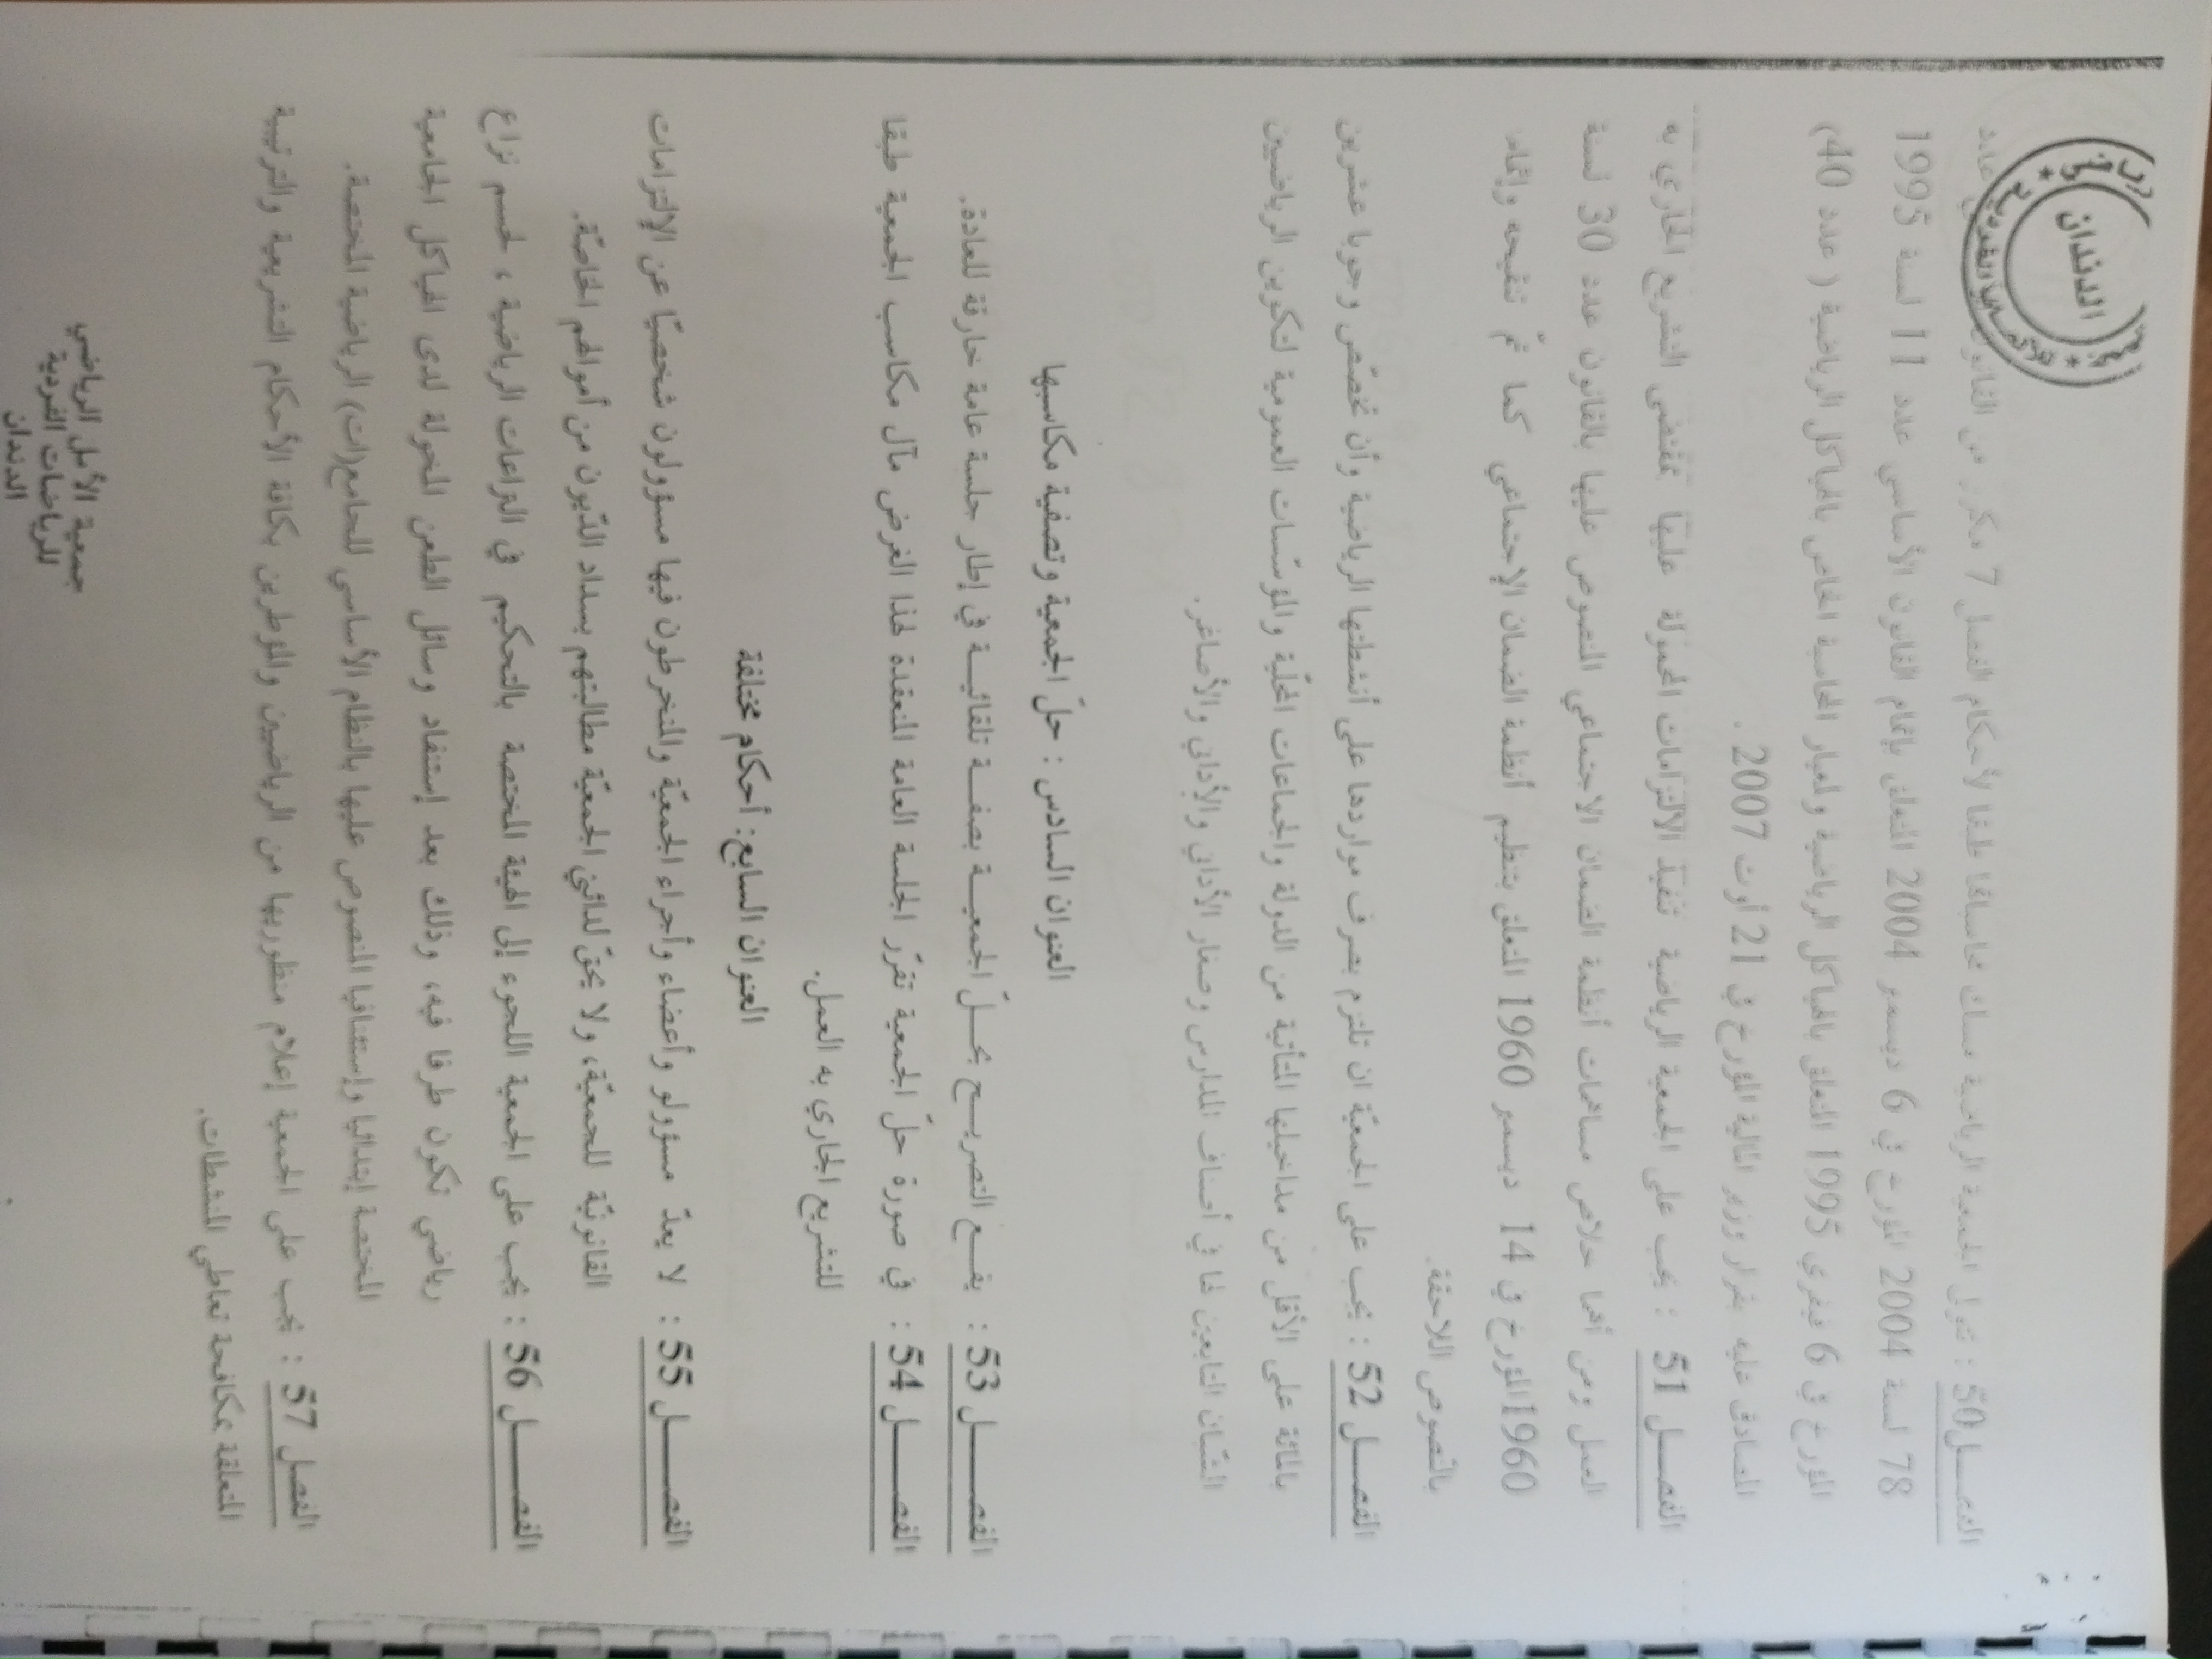 الدندان
الفصـــل 50 : تتولى الجمعية الرياضية مسك محاسبتها طبقا لأحكام الفصل 7 مكرر من القانون
78 لسنة 2004 المؤرخ في 6 ديسمبر 2004 المتعلق بإتمام القانون الأساسي عدد 11 لسنة 1995
المؤرخ في 6 فيفري 1995 المتعلق بالهياكل الرياضية ولمعيار المحاسبة الخاص بالهياكل الرياضية ( عدد 40)
المصادق عليه بقرار وزير المالية المؤرخ في 21 أوت 2007 .
الفصـــل 51 : يجب على الجمعية الرياضية تنفيذ الالتزامات المحمولة عليها بمقتضى التشريع الجاري به
العمل ومن أهما خلاص مساهمات أنظمة الضمان الاجتماعي المنصوص عليها بالقانون عدد 30 لسنة
1960 المؤرخ في 14 ديسمبر 1960 المتعلق بتنظيم أنظمة الضمان الإجتماعي كما تمّ تنقيحه وإتمامه
بالنصوص اللاحقة.
الفصـــل 52 : يجب على الجمعيّة ان تلتزم بصرف مواردها على أنشطتها الرياضية وأن تخصّص وجوبا عشرين
بالمائة على الأقل من مداخيلها المتأتية من الدولة والجماعات المحلّية والمؤسّسات العمومية لتكوين الرياضيين
الشبّان التابعين لها في أصناف المدارس وصغار الأداني والأداني والأصاغر .
العنوان السادس : حلّ الجمعية وتصفية مكاسبها
الفصـــل 53 : يقـــع التصريـــح بحـــلّ الجمعيـــة بصفـــة تلقائيـــة في إطار جلسة عامة خارقة للعادة.
الفصـــل 54 : في صورة حلّ الجمعية تقرّر الجلسة العامة المنعقدة لهذا الغرض مآل مكاسب الجمعية طبقا
للتشريع الجاري به العمل.
العنوان السابع: أحكام مختلفة
الفصـــل 55 : لا يعدّ مسؤولو وأعضاء وأجراء الجمعيّة والمنخرطون فيها مسؤولون شخصيّا عن الإلتزامات
القانونيّة للجمعيّة، ولا يحقّ لدائني الجمعيّة مطالبتهم بسداد الدّيون من أموالهم الخاصّة.
الفصـــل 56 : يجب على الجمعية اللجوء إلى الهيئة المختصة بالتحكيم في النزاعات الرياضية ، لحسم نزاع
رياضي تكون طرفا فيه، وذلك بعد إستنفاد وسائل الطعن المخولة لدى الهياكل الجامعية
المختصة إبتدائيا وإستئنافيا المنصوص عليها بالنظام الأساسي للجامعـ(ات) الرياضية المختصة.
الفصل 57 : يجب على الجمعية إعلام منظوريها من الرياضيين والمؤطرين بكافة الأحكام التشريعية والترتيبية
المتعلقة بمكافحة تعاطي المنشطات.
جمعية الأمل الرياضي
للرياضات الفردية
الدندان